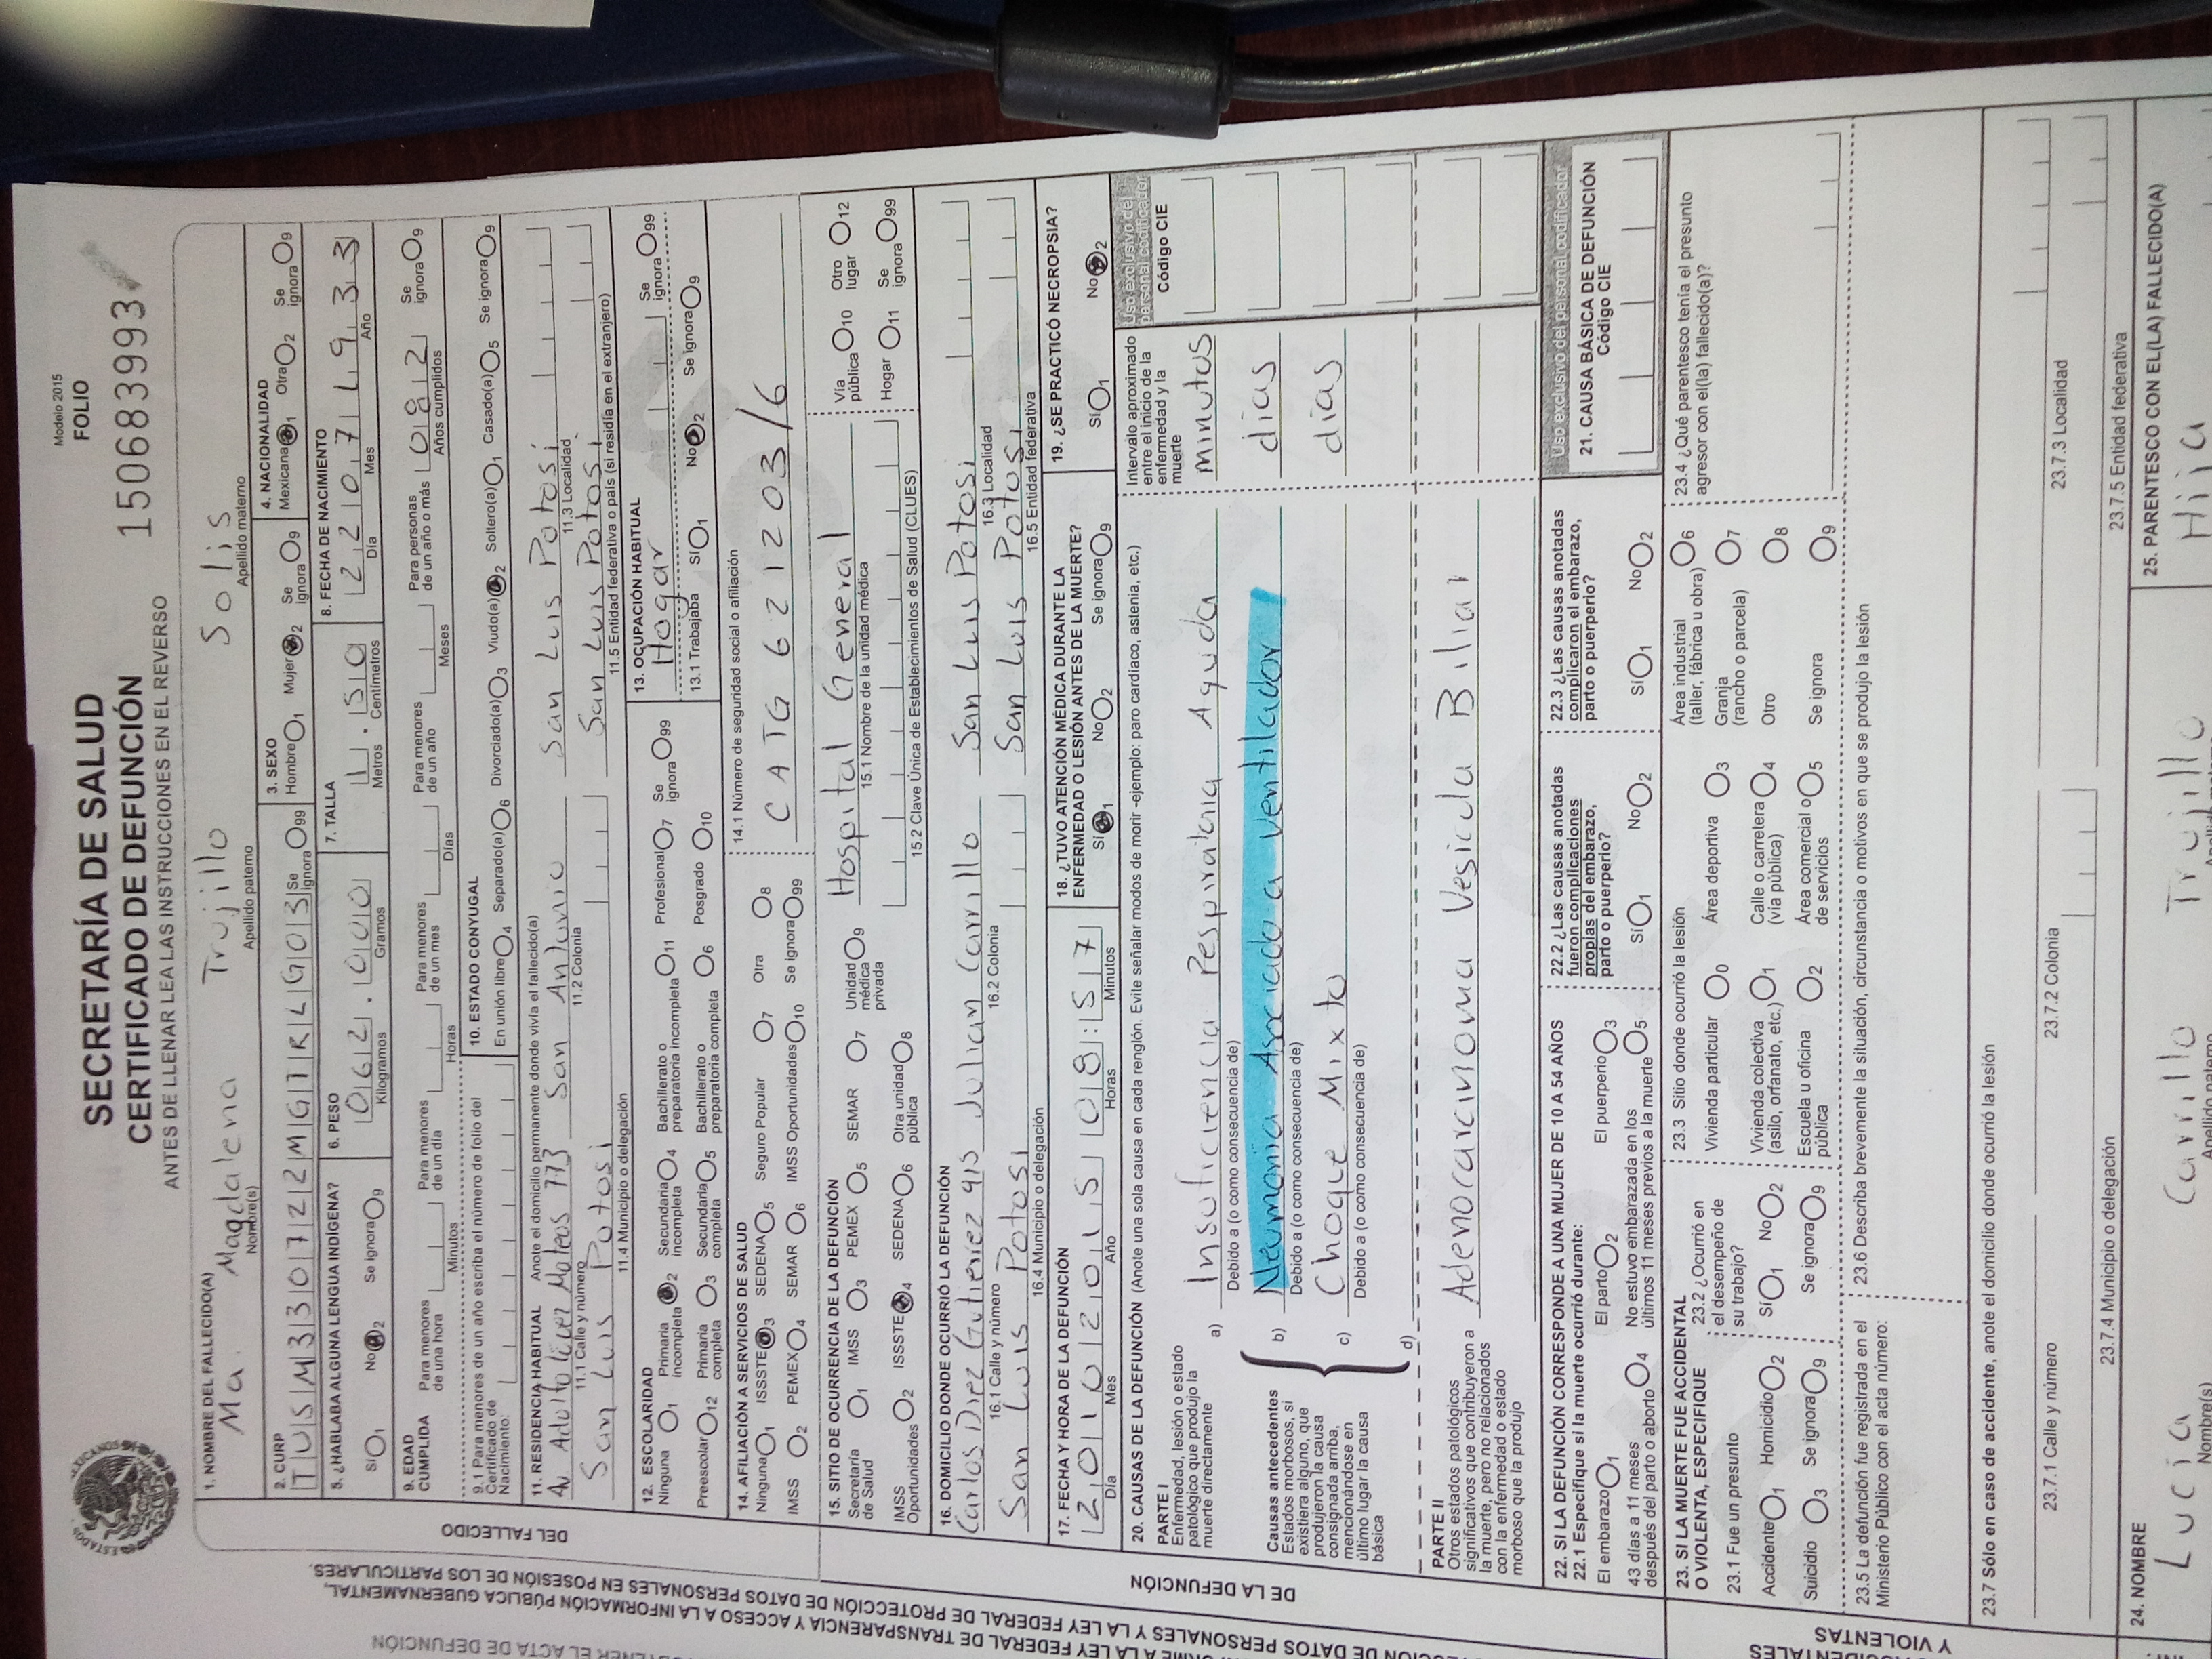 Modelo 2015
SECRETARÍA DE SALUD
CERTIFICADO DE DEFUNCIÓN
ANTES DE LLENAR LEA LAS INSTRUCCIONES EN EL REVERSO
FOLIO
150683993
1. NOMBRE DEL FALLECIDO(A)
Ma. Magdalena Trujillo Solis
Nombre(s) Apellido paterno Apellido materno
2. CURP
TUSM330722MGTRLG03 Se ignora 99
3. SEXO
Hombre 1 Mujer 2 Se ignora 9
4. NACIONALIDAD
Mexicana 1 Otra 2 Se ignora 9
5. ¿HABLABA ALGUNA LENGUA INDÍGENA?
Sí 1 No 2 Se ignora 9
6. PESO
062.000
Kilogramos Gramos
7. TALLA
1.50
Metros Centímetros
8. FECHA DE NACIMIENTO
22 07 1933
Día Mes Año
9. EDAD CUMPLIDA
Para menores de una hora
Minutos
Para menores de un día
Horas
Para menores de un mes
Días
Para menores de un año
Meses
Para personas de un año o más 082
Años cumplidos
Se ignora 9
9.1 Para menores de un año escriba el número de folio del Certificado de Nacimiento:
10. ESTADO CONYUGAL
En unión libre 4 Separado(a) 6 Divorciado(a) 3 Viudo(a) 2 Soltero(a) 1 Casado(a) 5 Se ignora 9
11. RESIDENCIA HABITUAL Anote el domicilio permanente donde vivía el fallecido(a)
Av Adolfo López Mateos 773 San Antonio San Luis Potosí
11.1 Calle y número 11.2 Colonia 11.3 Localidad
San Luis Potosi San Luis Potosi
11.4 Municipio o delegación 11.5 Entidad federativa o país (si residía en el extranjero)
12. ESCOLARIDAD
Ninguna 1 Primaria incompleta 2 Secundaria incompleta 4 Bachillerato o preparatoria incompleta 11 Profesional 7 Se ignora 99
Preescolar 12 Primaria completa 3 Secundaria completa 5 Bachillerato o preparatoria completa 6 Posgrado 10
13. OCUPACIÓN HABITUAL
Hogar Se ignora 99
13.1 Trabajaba Sí 1 No 2 Se ignora 9
14. AFILIACIÓN A SERVICIOS DE SALUD
Ninguna 1 ISSSTE 3 SEDENA 5 Seguro Popular 7 Otra 8
IMSS 2 PEMEX 4 SEMAR 6 IMSS Oportunidades 10 Se ignora 99
14.1 Número de seguridad social o afiliación
CATG 621203/6
15. SITIO DE OCURRENCIA DE LA DEFUNCIÓN
Secretaría de Salud 1 IMSS 3 PEMEX 5 SEMAR 7 Unidad médica privada 9
IMSS Oportunidades 2 ISSSTE 4 SEDENA 6 Otra unidad pública 8
Hospital General
15.1 Nombre de la unidad médica
15.2 Clave Única de Establecimientos de Salud (CLUES)
Vía pública 10 Otro lugar 12
Hogar 11 Se ignora 99
16. DOMICILIO DONDE OCURRIÓ LA DEFUNCIÓN
Carlos Diez Gutierrez 915 Julian Carrillo San Luis Potosi
16.1 Calle y número 16.2 Colonia 16.3 Localidad
San Luis Potosi San Luis Potosi
16.4 Municipio o delegación 16.5 Entidad federativa
17. FECHA Y HORA DE LA DEFUNCIÓN
20 10 2015 08:57
Día Mes Año Horas Minutos
18. ¿TUVO ATENCIÓN MÉDICA DURANTE LA ENFERMEDAD O LESIÓN ANTES DE LA MUERTE?
Sí 1 No 2 Se ignora 9
19. ¿SE PRACTICÓ NECROPSIA?
Sí 1 No 2
20. CAUSAS DE LA DEFUNCIÓN (Anote una sola causa en cada renglón. Evite señalar modos de morir -ejemplo: paro cardiaco, astenia, etc.)
Intervalo aproximado entre el inicio de la enfermedad y la muerte
Uso exclusivo del personal codificador
Código CIE
PARTE I
Enfermedad, lesión o estado patológico que produjo la muerte directamente
a) Insuficiencia Respiratoria Aguda minutos
Debido a (o como consecuencia de)
Causas antecedentes
Estados morbosos, si existiera alguno, que produjeron la causa consignada arriba, mencionándose en último lugar la causa básica
b) Neumonia Asociada a ventilador dias
Debido a (o como consecuencia de)
c) Choque Mixto dias
Debido a (o como consecuencia de)
d)
PARTE II
Otros estados patológicos significativos que contribuyeron a la muerte, pero no relacionados con la enfermedad o estado morboso que la produjo
Adenocarcinoma Vesicula Biliar
Uso exclusivo del personal codificador
21. CAUSA BÁSICA DE DEFUNCIÓN
Código CIE
22. SI LA DEFUNCIÓN CORRESPONDE A UNA MUJER DE 10 A 54 AÑOS
22.1 Especifique si la muerte ocurrió durante:
El embarazo 1 El parto 2 El puerperio 3
43 días a 11 meses después del parto o aborto 4 No estuvo embarazada en los últimos 11 meses previos a la muerte 5
22.2 ¿Las causas anotadas fueron complicaciones propias del embarazo, parto o puerperio?
Sí 1 No 2
22.3 ¿Las causas anotadas complicaron el embarazo, parto o puerperio?
Sí 1 No 2
23. SI LA MUERTE FUE ACCIDENTAL O VIOLENTA, ESPECIFIQUE
23.1 Fue un presunto
Accidente 1 Homicidio 2
Suicidio 3 Se ignora 9
23.2 ¿Ocurrió en el desempeño de su trabajo?
Sí 1 No 2
Se ignora 9
23.3 Sitio donde ocurrió la lesión
Vivienda particular 0 Área deportiva 3 Área industrial (taller, fábrica u obra) 6
Vivienda colectiva (asilo, orfanato, etc.) 1 Calle o carretera (vía pública) 4 Granja (rancho o parcela) 7
Escuela u oficina pública 2 Área comercial o de servicios 5 Otro 8
Se ignora 9
23.4 ¿Qué parentesco tenía el presunto agresor con el(la) fallecido(a)?
23.5 La defunción fue registrada en el Ministerio Público con el acta número:
23.6 Describa brevemente la situación, circunstancia o motivos en que se produjo la lesión
23.7 Sólo en caso de accidente, anote el domicilio donde ocurrió la lesión
23.7.1 Calle y número 23.7.2 Colonia 23.7.3 Localidad
23.7.4 Municipio o delegación 23.7.5 Entidad federativa
24. NOMBRE
Lucía Carrillo Trujillo
Nombre(s) Apellido paterno
25. PARENTESCO CON EL(LA) FALLECIDO(A)
Hija
DEL FALLECIDO
DE LA DEFUNCIÓN
Y VIOLENTAS
DATOS PERSONALES Y LA LEY FEDERAL DE PROTECCIÓN DE DATOS PERSONALES EN POSESIÓN DE LOS PARTICULARES.
A LA LEY FEDERAL DE TRANSPARENCIA Y ACCESO A LA INFORMACIÓN PÚBLICA GUBERNAMENTAL,
EL ACTA DE DEFUNCIÓN